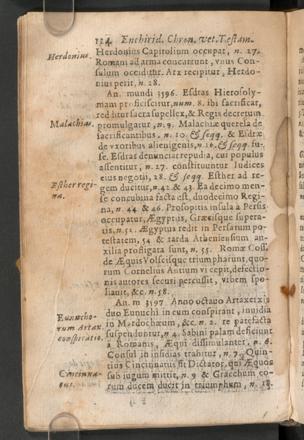 134 Enchirid. Chron. vet. Testam.
Herdonius.
Herdonius Capitolium occupat, n. 27.
Romani ad arma concurrunt, vnus Con-
sulum occiditur. Arx recipitur, Herdo-
nius perit, n. 28.
An. mundi 3596. Esdras Hierosoly-
mam proficiscitur, num. 8. ibi sacrificat,
reddit ur sacra supellex, & Regis decretum
Malachias.
promulgatur, n. 9. Malachiæ querela de
sacrificantibus, n. 10. & seqq. & Esdræ
de vxoribus alienigenis, n. 16. & seqq. fu-
se. Esdras denunciat repudia, cui populus
assentitur, n. 27. constituuntur Iudices
eius negotii, 28. & seqq. Esther ad re-
Esther regi-
na.
gem ducitur, n. 42 & 43. Ea decimo men-
se concubina facta est, duodecimo Regi-
na, n. 44 & 46. Prosopitis insula à Persis
occupatur, Ægyptus, Græcisque supera-
tis, n. 51. Ægyptus redit in Persarum po-
testatem, 54 & tarda Atheniensium au-
xilia profligata sunt, n. 55. Romæ Coss.
de Æquis Volscisque triumpharunt, quo-
rum Cornelius Antium vi cepit, defectio-
nis autores securi percussit, vrbem spo-
liauit, &c. n. 58.
An. m 3597. Anno octauo Artaxerxis
Eunucho-
rum Artax.
conspiratio.
duo Eunuchi in eum conspirant, inuidia
in Mardochæum, &c n. 2. re patefacta
suspenduntur, n. 4. Sabini palam deficiunt
à Romanis, Æqui dissimulanter, n. 6.
Consul in insidias trahitur, n. 7. Quin-
Cincinna-
tus.
tius Cincinnatus fit Dictator, qui Æquos
sub iugum mittit, n. 9 & Gracchum eo-
rum ducem ducit in triumphum, n. 13.